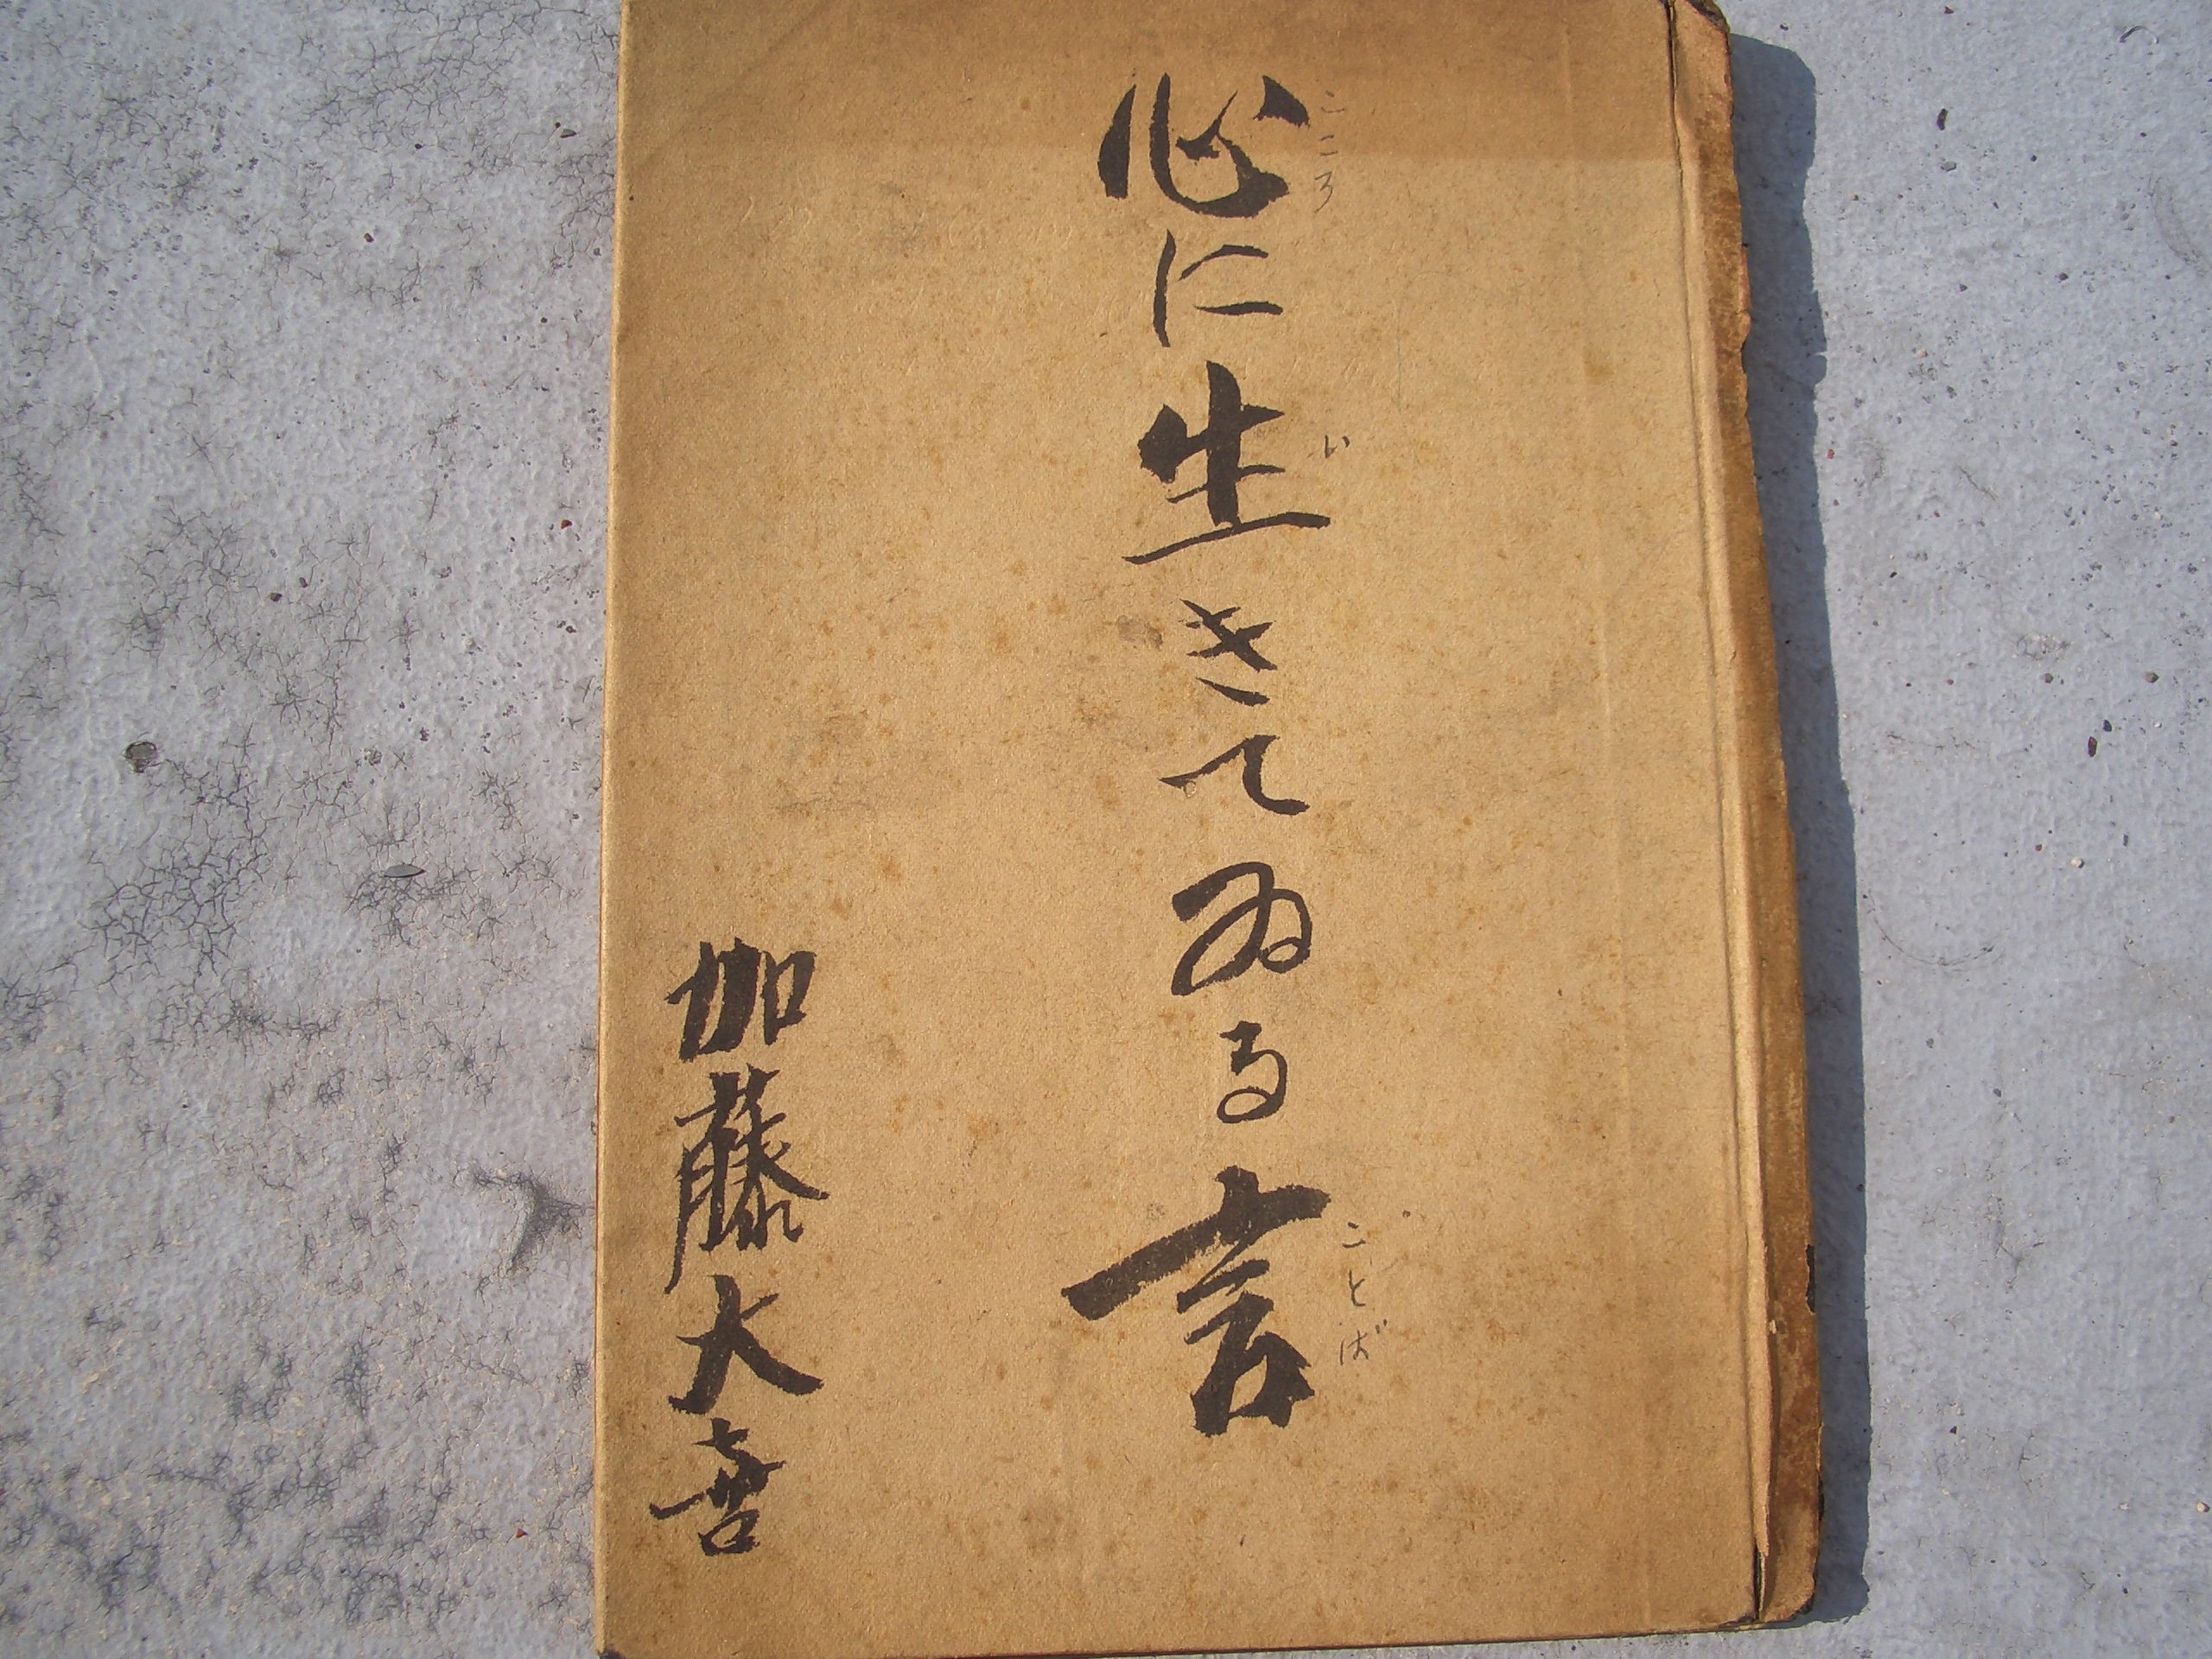 心に生きてゐる言
こころ
い
ことば
加藤大吾